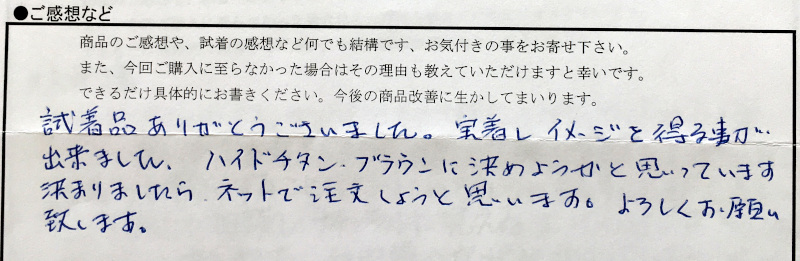 ●ご感想など
商品のご感想や、試着の感想など何でも結構です、お気付きの事をお寄せ下さい。
また、今回ご購入に至らなかった場合はその理由も教えていただけますと幸いです。
できるだけ具体的にお書きください。今後の商品改善に生かしてまいります。
試着品ありがとうございました。実着しイメージを得る事が
出来ました、ハイドチタン・ブラウンに決めようかと思っています
決まりましたら、ネットで注文しようと思います。よろしくお願い
致します。